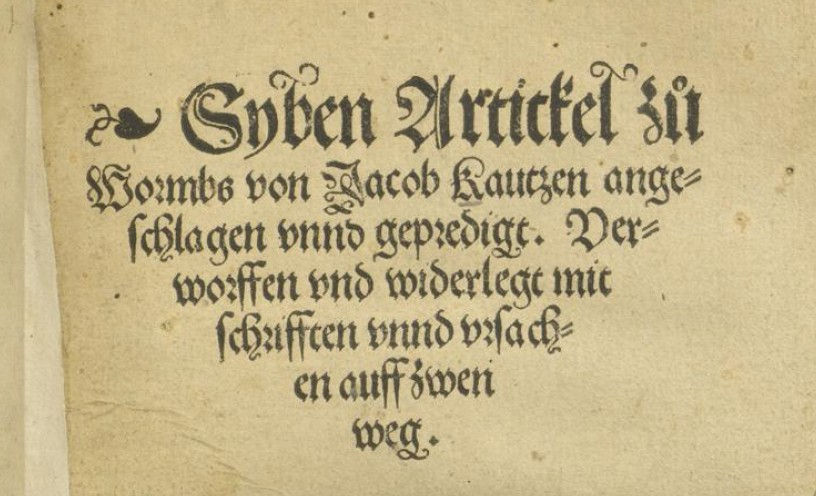 ❧ Syben Artickel zů
Wormbs von Jacob Kautzen ange⸗
schlagen vnnd gepredigt. Ver⸗
worffen vnd widerlegt mit
schrifften vnnd vrsach⸗
en auff zwen
weg.